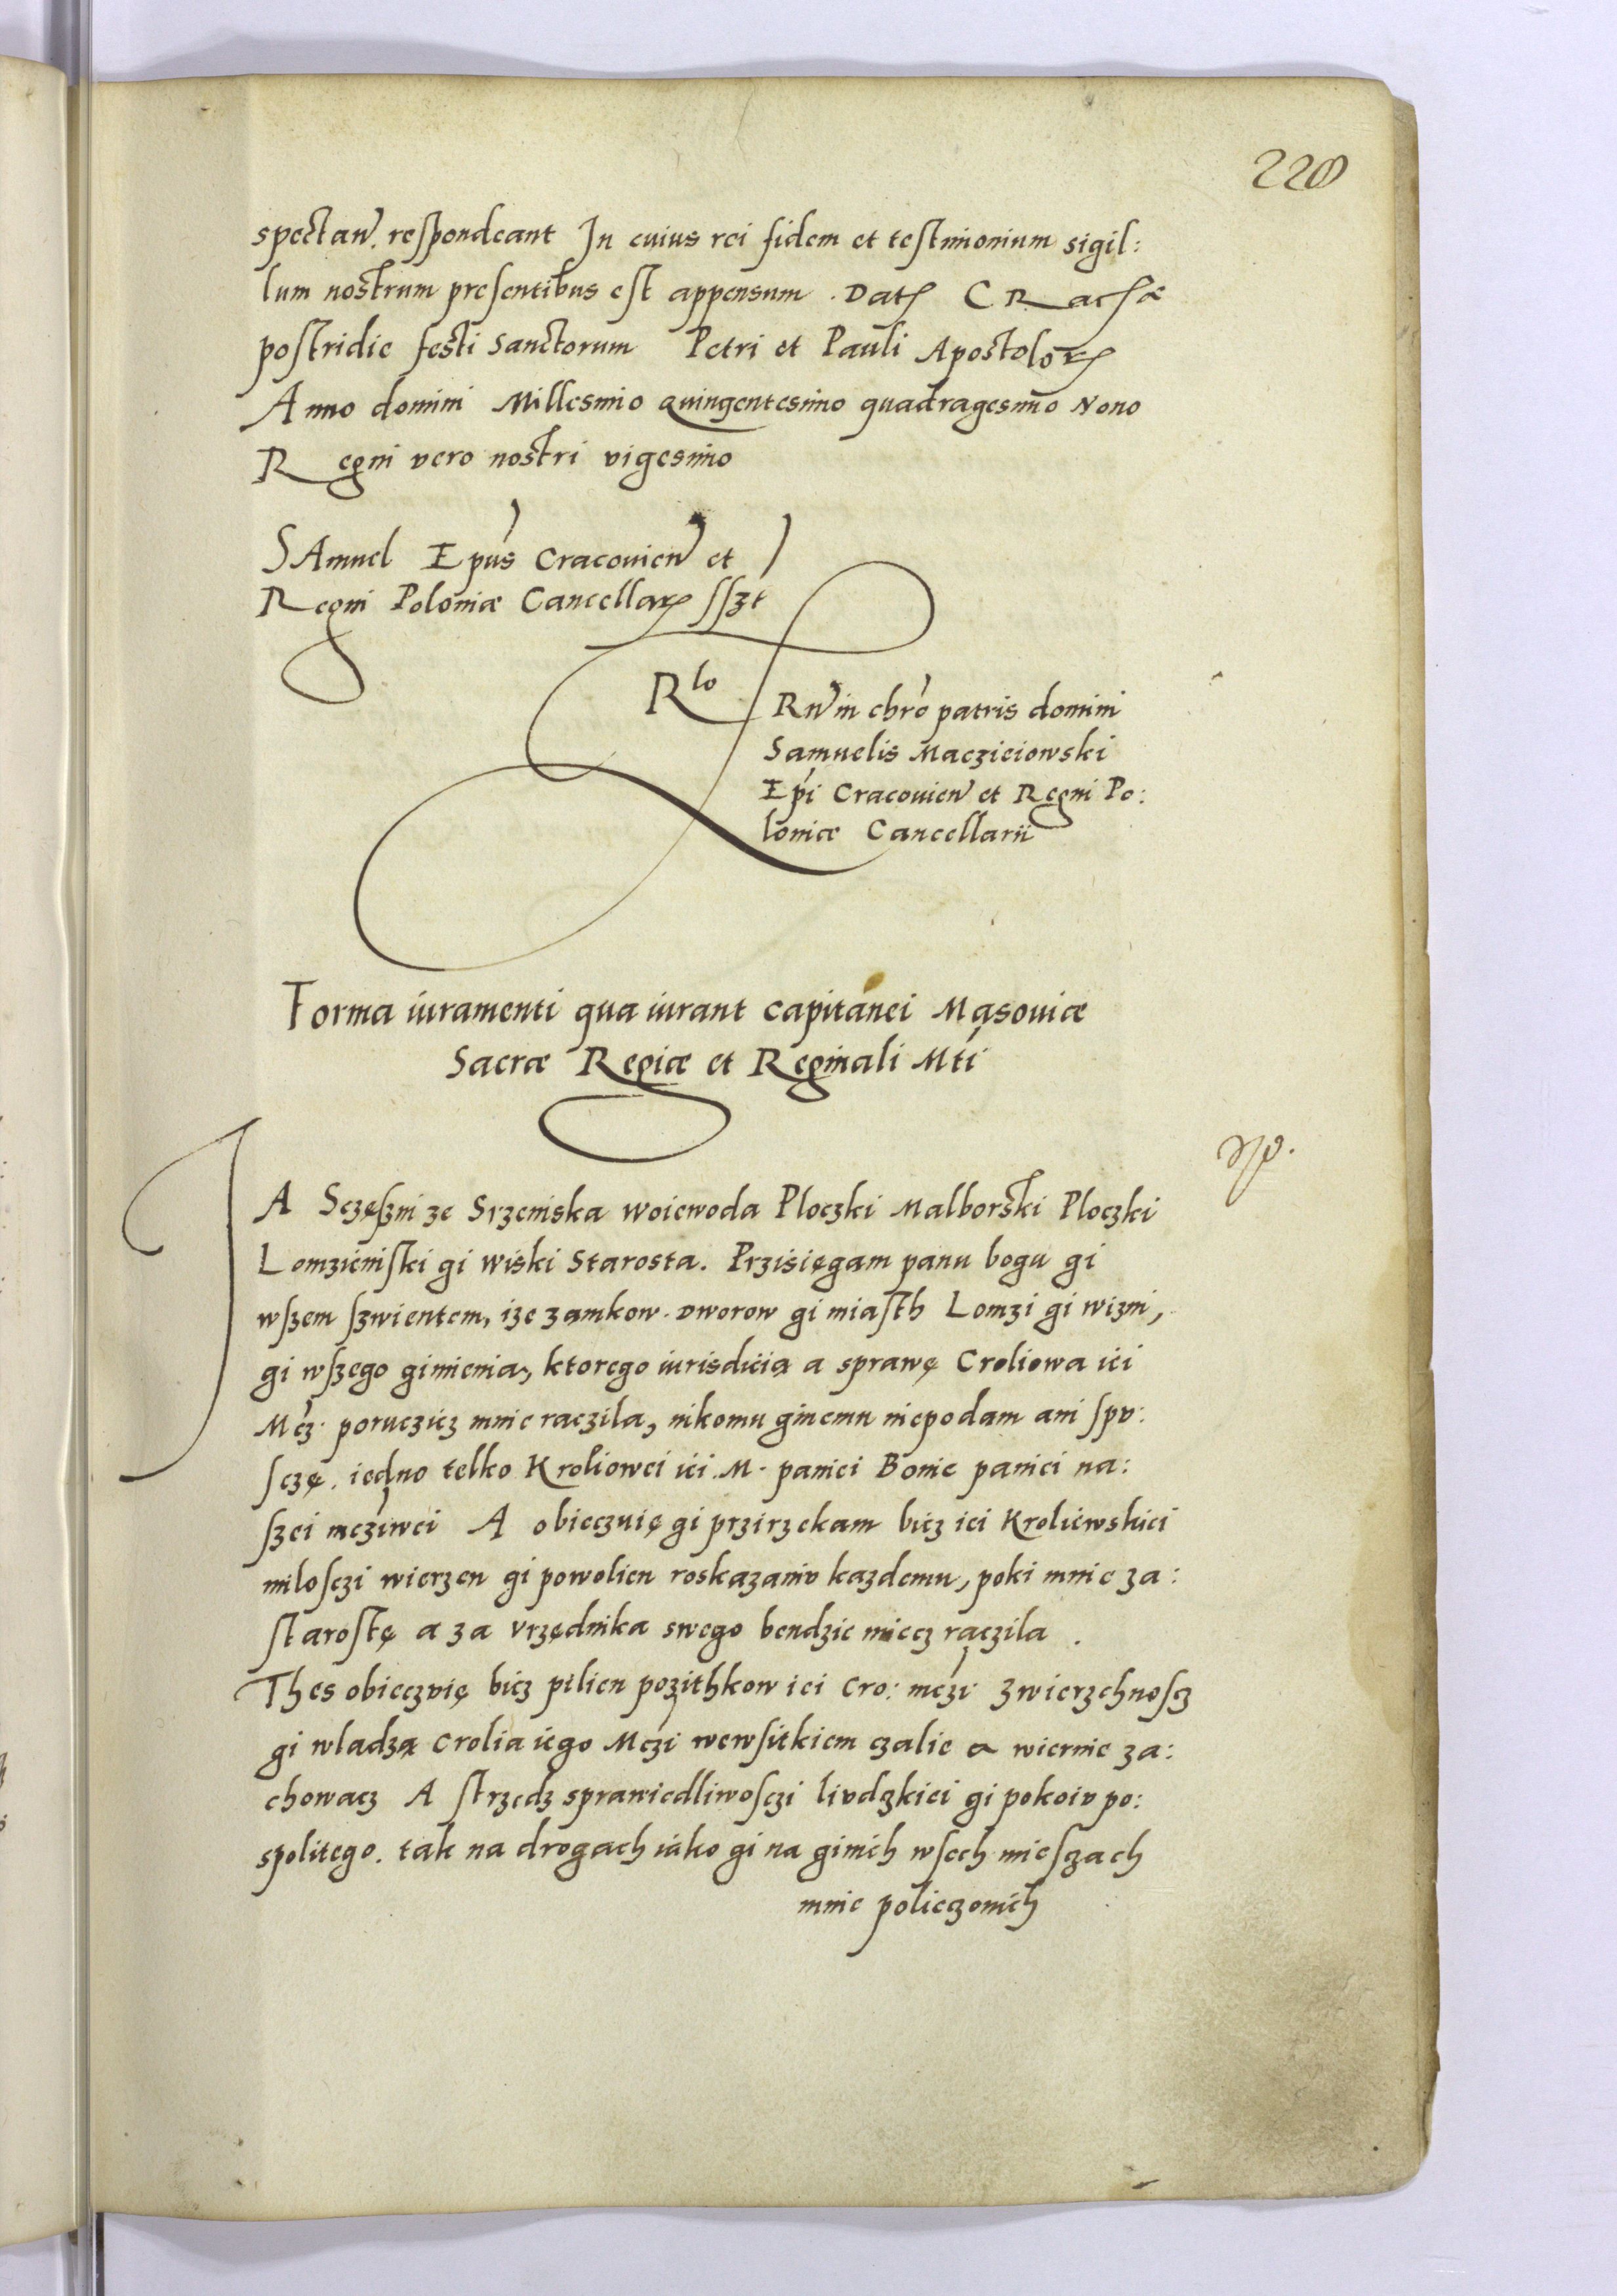 220
spectan̄. respondeant In cuius rei fidem et testimonium sigil:
lum nostrum presentibus est appensum. Dat CRac
postridie festi Sanctorum Petri et Pauli Apostolor̄
Anno domini Millesimo quingentesimo quadragesimo Nono
Regni vero nostri vigesimo
SAmuel Epus Cracovien̄ et
Regni Poloniæ Cancellar̄ sszt
Rlo Rn̄ in chro patris domini
Samuelis Macziciowski
Epi Cracovien̄ et Regni Po:
loniæ Cancellarii
Forma iuramenti qua iurant capitanei Masouiæ
Sacræ Regiæ et Reginali Mti
JA Sczęszni ze Srzemska woiewoda Ploczki Malborski Ploczki
Lomzienski gi wiski Starosta. Przisięgam panu bogu gi
wszem szwientem, ize zamkow. dworow gi miasth Lomzi gi wizni,
gi wszego gimienia, ktorego iurisdicią a sprawę Croliowa ici
Mcz. poruczicz mnie raczila, nikomu ginemu niepodam ani spv:
sczę. iedno telko Kroliowei ici. M. paniei Bonie paniei na:
szei mcziwei A obieczuię gi przirzekam bicz iei Kroliewskiei
milosczi wierzen gi powolien roskazaniv kazdemu, poki mnie za:
starostę a za vrzędnika swego bendzie miecz raczila.
Thes obieczvię bicz pilien pozithkow iei Cro: mczi zwierzchnoscz
gi wladzą Crolia iego Mczi wewsitkiem czalie a wiernie za:
chowacz A strzedz sprawiedliwosczi livdzkiei gi pokoiv po:
spolitego. tak na drogach iako gi na ginich wsech mieszach
mnie policzonich